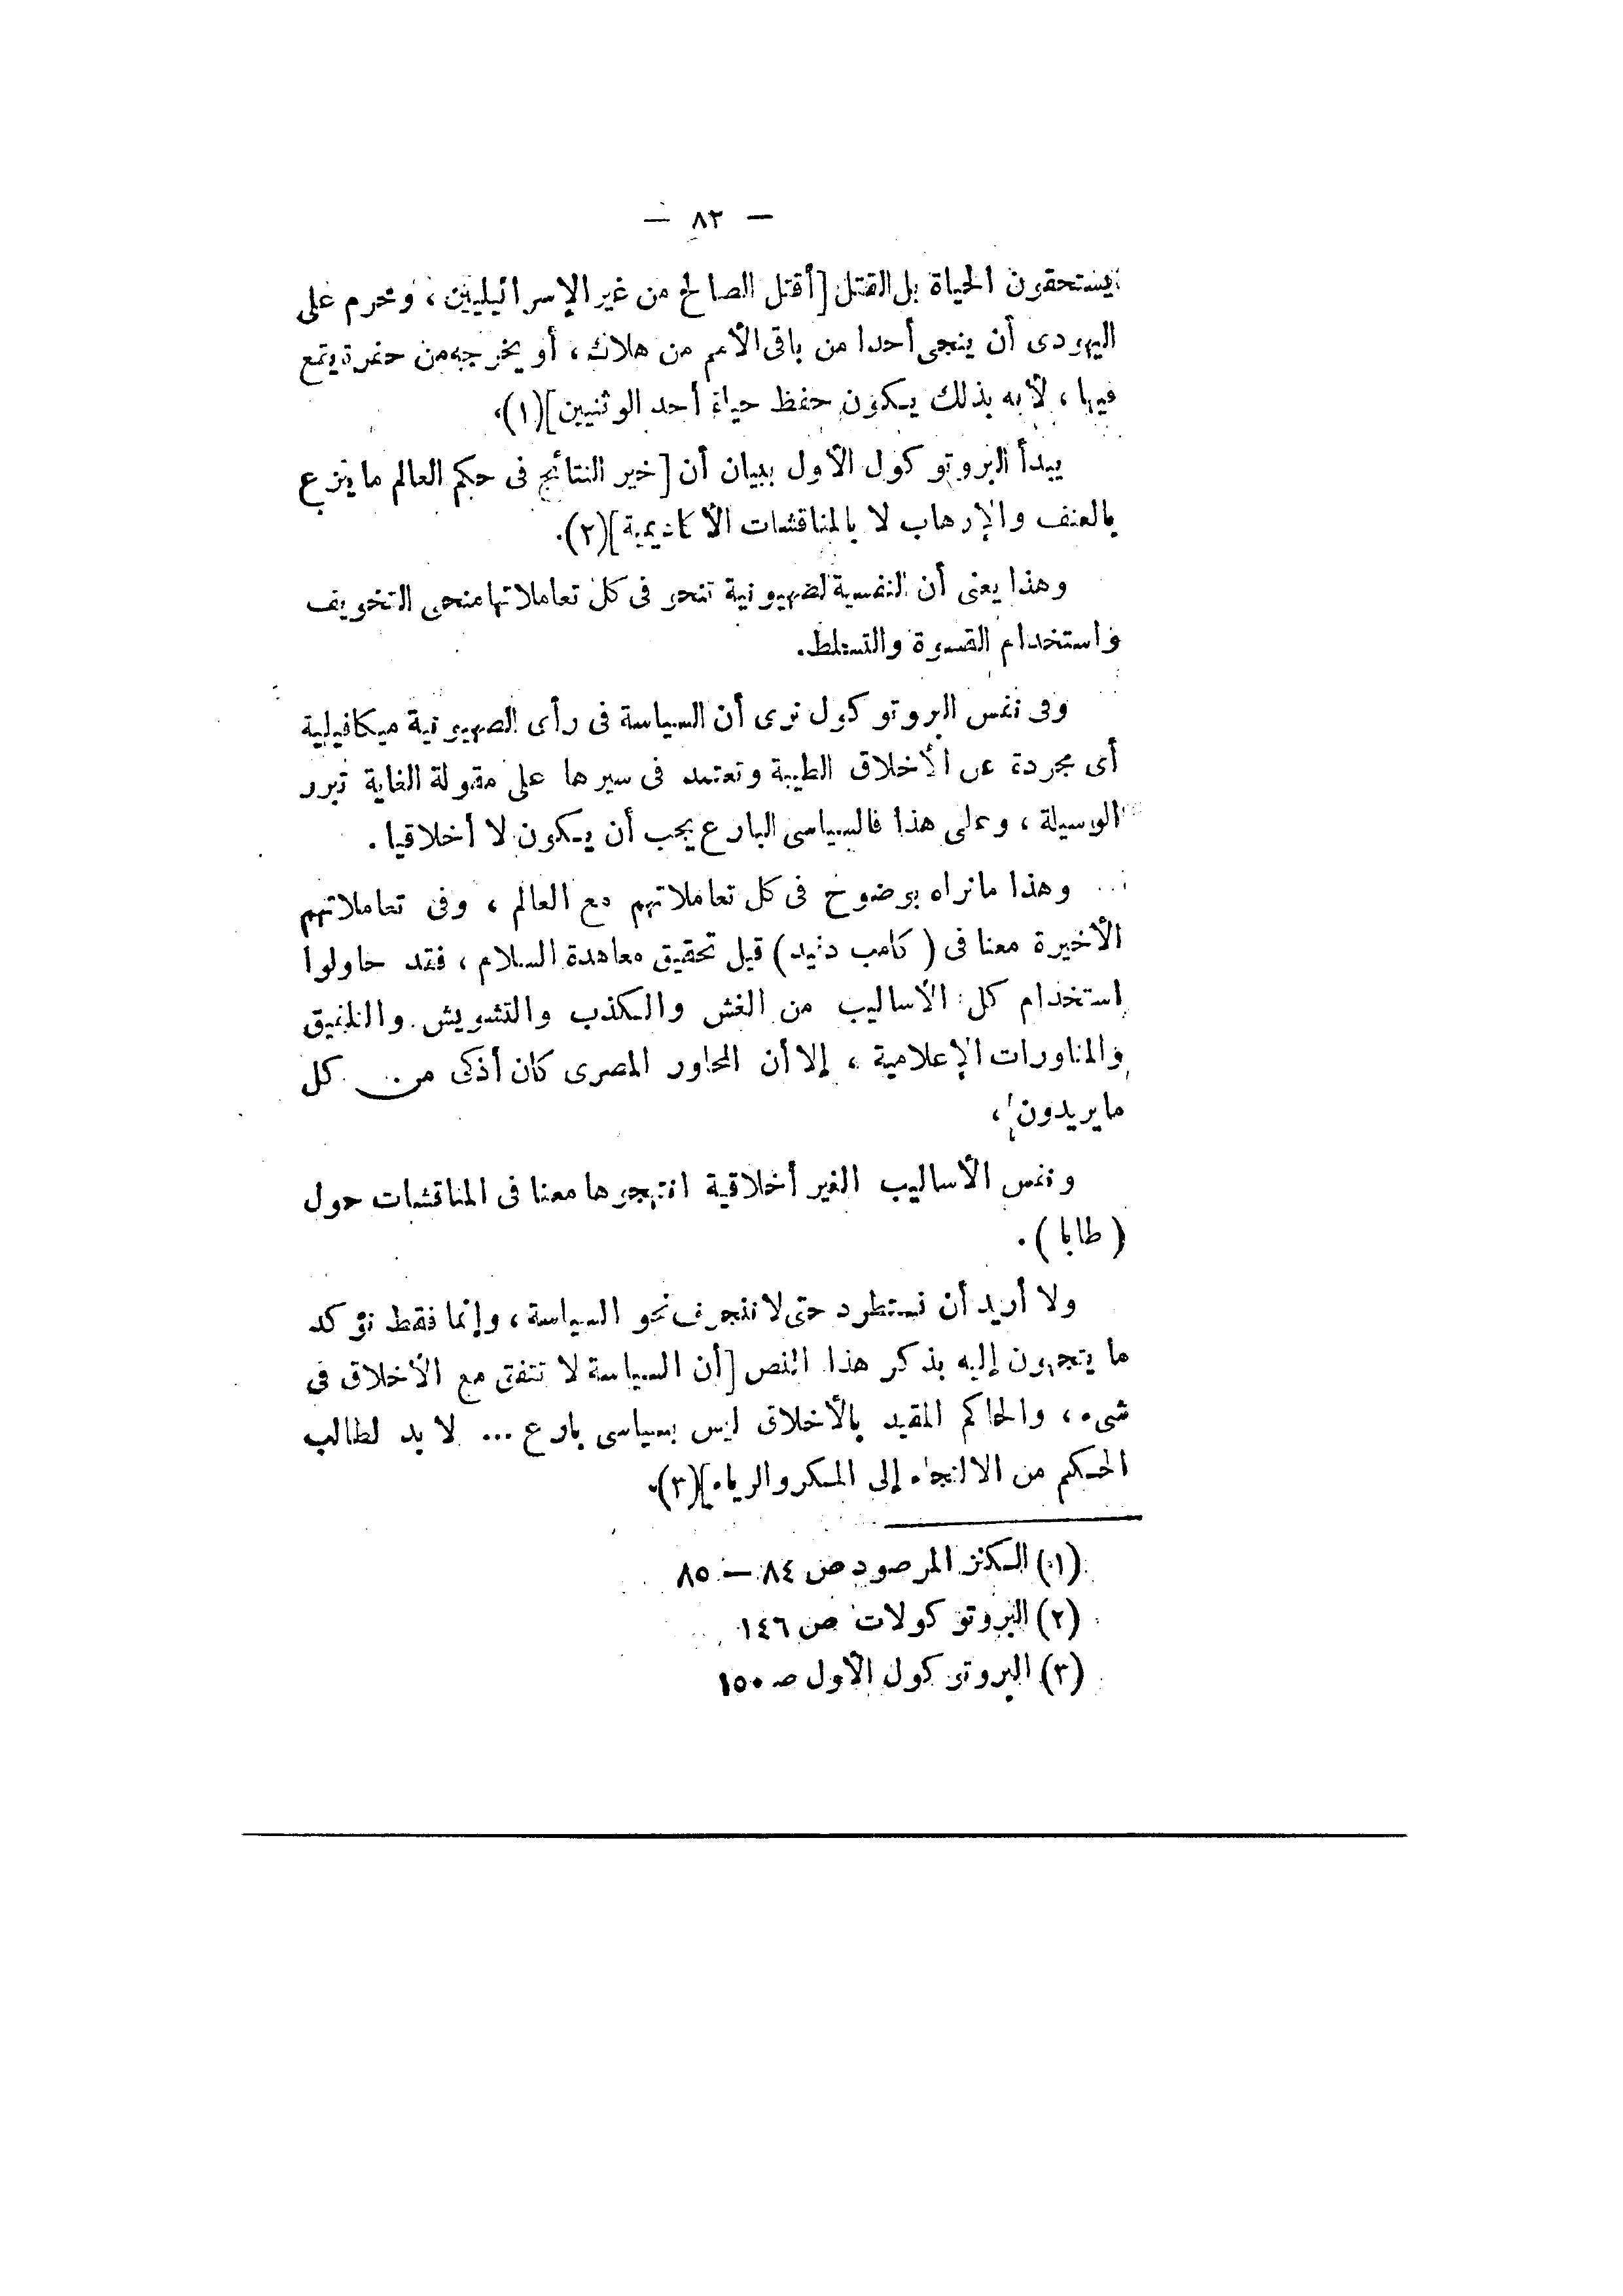 — ٨٣ —
يستحقون الحياة بل القتل [أقتل الصالح من غير الإسرائيليين، ومحرم على
اليهودى أن ينجى أحدا من باقى الأمم من هلاك، أو يخرجه من حفرة يقع
فيها، لأنه بذلك يكون حفظ حياة أحد الوثنيين](١).
يبدأ البروتوكول الأول ببيان أن [خير النتائج فى حكم العالم ما ينزع
بالعنف والإرهاب لا بالمناقشات الأكاديمية](٢).
وهذا يعنى أن النفسية الصهيونية تنحو فى كل تعاملاتها منحى التخويف
واستخدام القسوة والتسلط.
وفى نفس البروتوكول نرى أن السياسة فى رأى الصهيونية ميكافيلية
أى مجردة عن الأخلاق الطيبة وتعتمد فى سيرها على مقولة الغاية تبرر
الوسيلة، وعلى هذا فالسياسى البارع يجب أن يكون لا أخلاقيا.
وهذا مانراه بوضوح فى كل تعاملاتهم مع العالم، وفى تعاملاتهم
الأخيرة معنا فى (كامب دفيد) قبل تحقيق معاهدة السلام، فقد حاولوا
استخدام كل الأساليب من الغش والكذب والتشويش والتلفيق
والمناورات الإعلامية، إلا أن المحاور المصرى كان أذكى من كل
ما يريدون،
ونفس الأساليب الغير أخلاقية انتهجوها معنا فى المناقشات حول
(طابا).
ولا أريد أن نستطرد حتى لا ننجرف نحو السياسة، وإنما فقط نؤكد
ما يتجهون إليه بذكر هذا النص [أن السياسة لا تتفق مع الأخلاق فى
شىء، والحاكم المقيد بالأخلاق ليس بسياسى بارع ... لا بد لطالب
الحكم من الالتجاء إلى المكر والرياء](٣).
(١) الكنز المرصود ص ٨٤ — ٨٥
(٢) البروتوكولات ص ١٤٦
(٣) البروتوكول الأول صـ ١٥٠